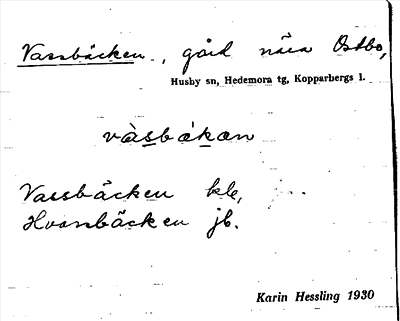 Vassbäcken, gård nära Ostbo,
Husby sn, Hedemora tg, Kopparbergs l.
vàsbäkan
Vassbäcken kle,
Hvassbäcken jb.
Karin Hessling 1930